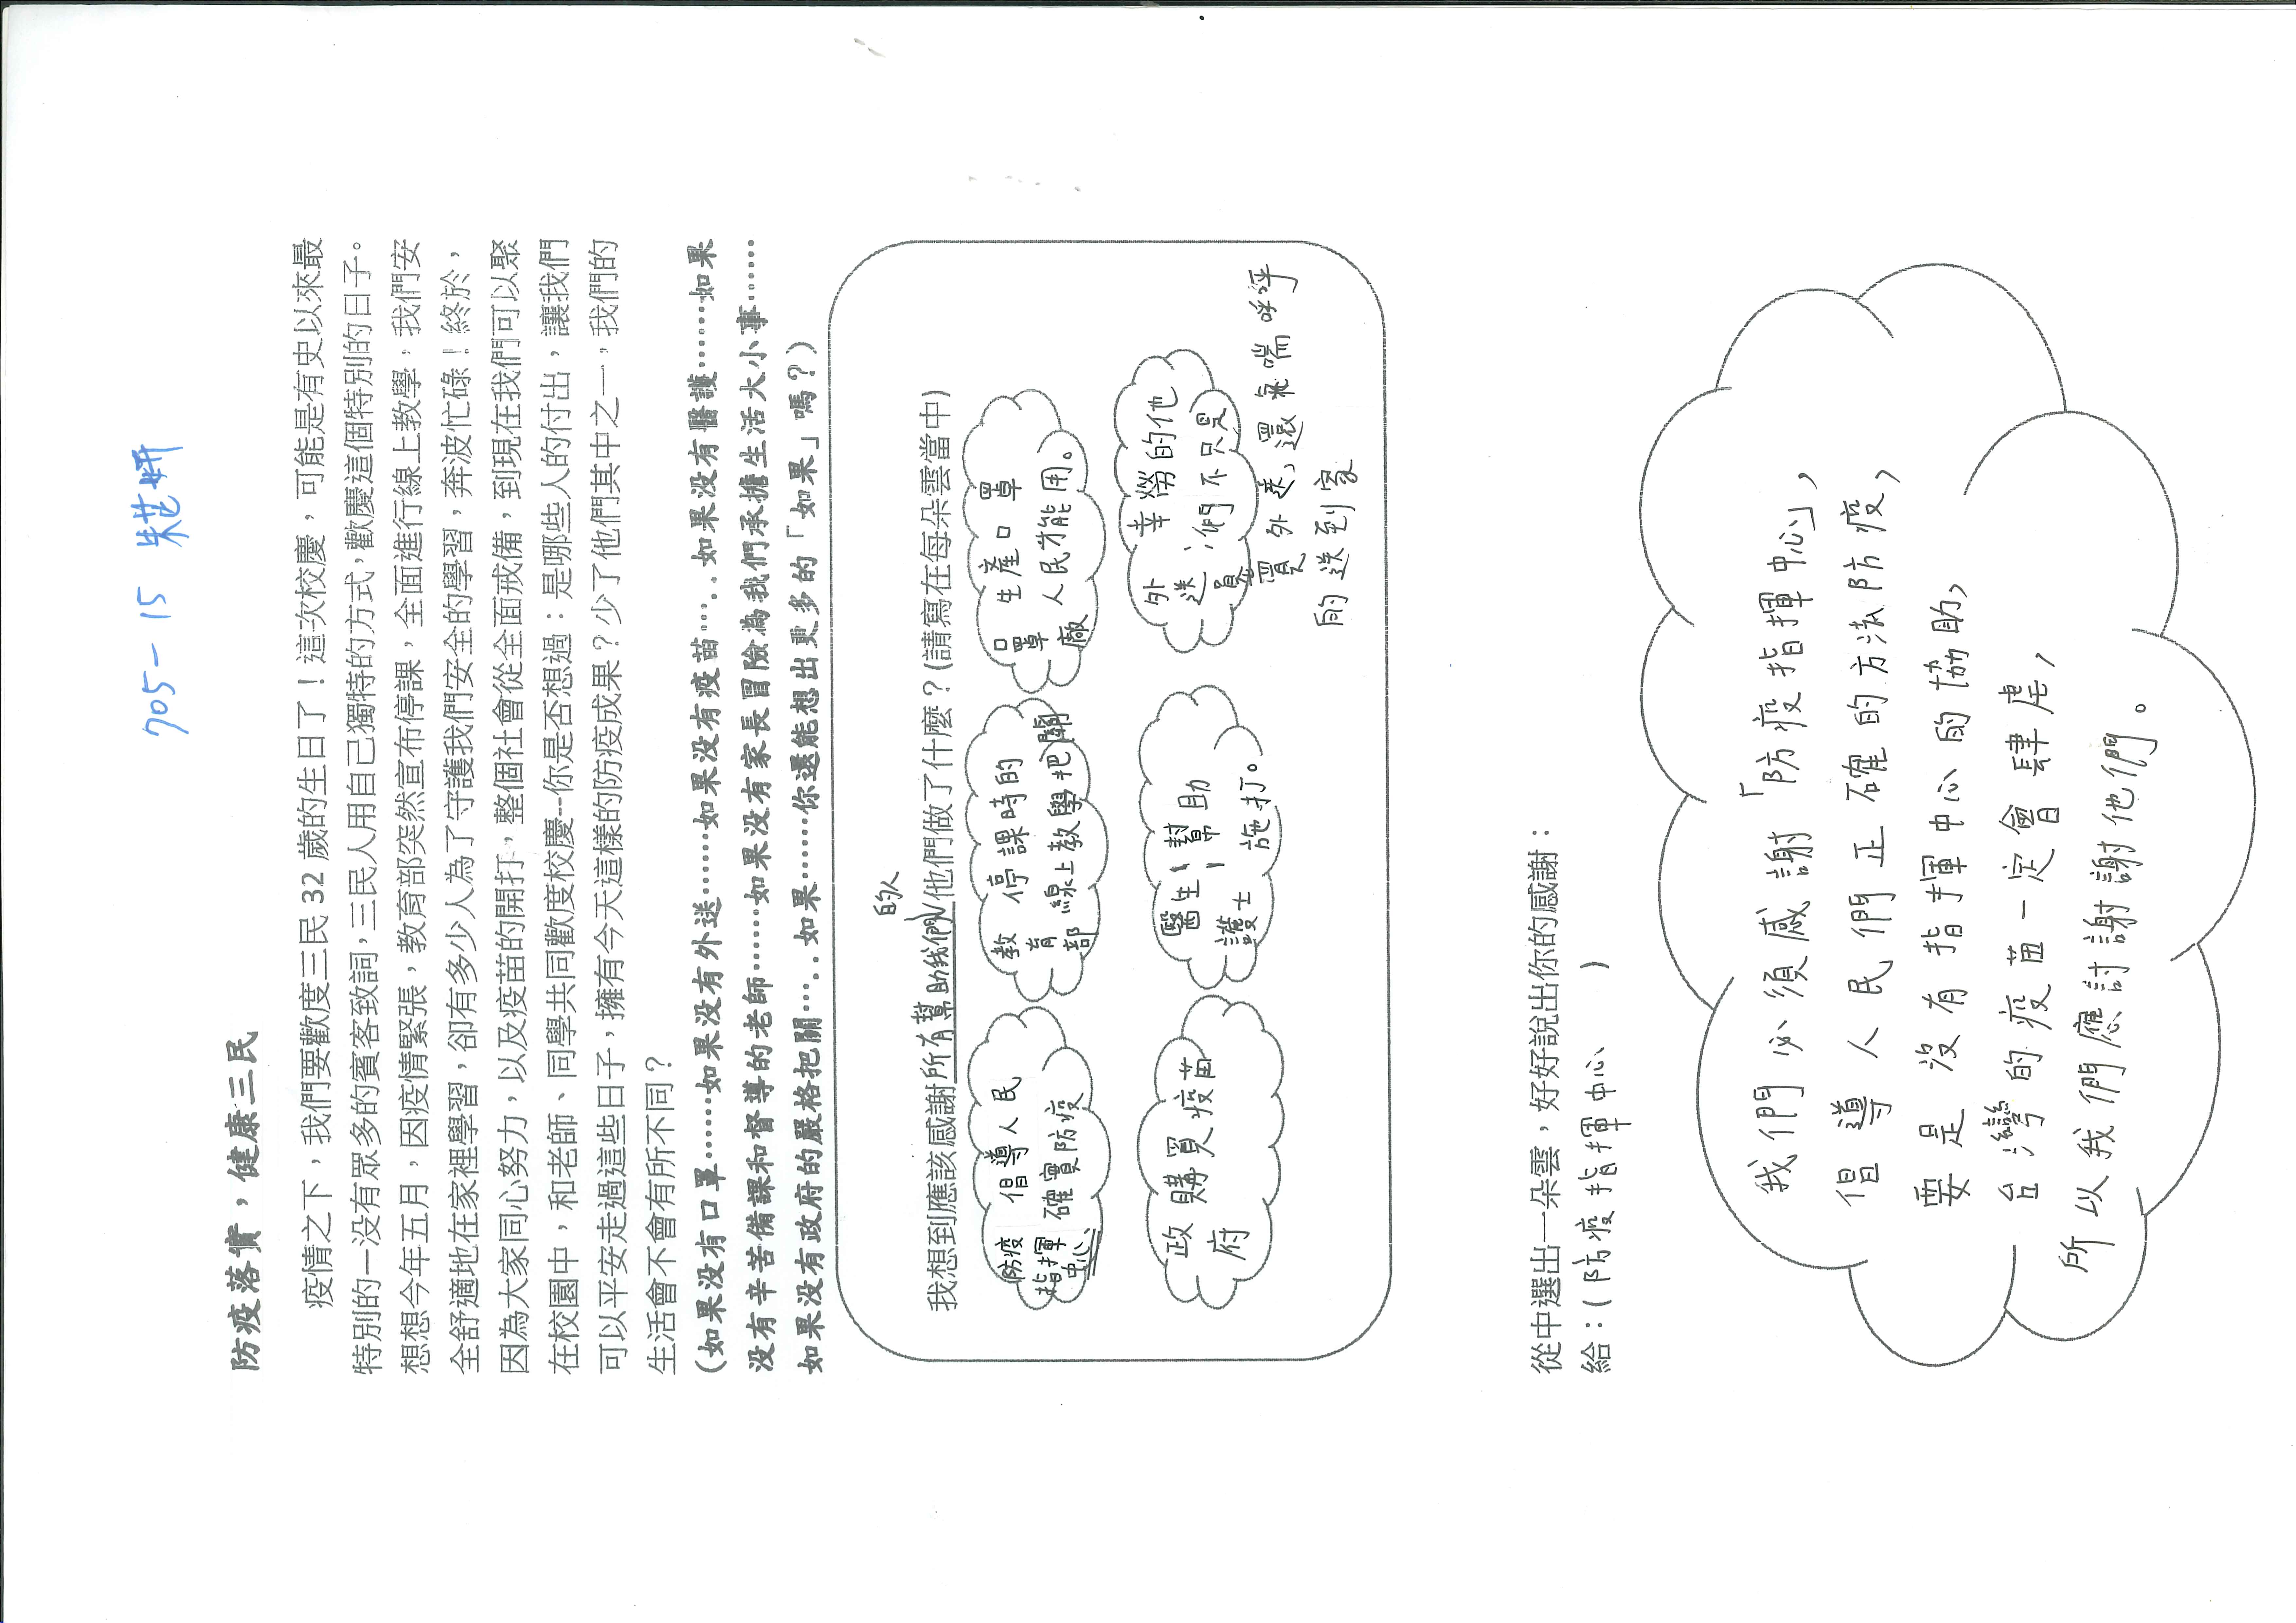 705-15 朱芷妍
防疫落實，健康三民
疫情之下，我們要歡度三民 32 歲的生日了！這次校慶，可能是有史以來最
特別的一沒有眾多的賓客致詞，三民人用自己獨特的方式，歡慶這個特別的日子。
想想今年五月，因疫情緊張，教育部突然宣布停課，全面進行線上教學，我們安
全舒適地在家裡學習，卻有多少人為了守護我們安全的學習，奔波忙碌！終於，
因為大家同心努力，以及疫苗的開打，整個社會從全面戒備，到現在我們可以聚
在校園中，和老師、同學共同歡度校慶--你是否想過：是哪些人的付出，讓我們
可以平安走過這些日子，擁有今天這樣的防疫成果？少了他們其中之一，我們的
生活會不會有所不同？
(如果沒有口罩……如果沒有外送……如果沒有疫苗…..如果沒有醫護……如果
沒有辛苦備課和督導的老師……如果沒有家長冒險為我們承擔生活大小事……
如果沒有政府的嚴格把關…..如果……你還能想出更多的「如果」嗎？)
的人
我想到應該感謝所有幫助我們他們做了什麼？(請寫在每朵雲當中)
防疫指揮中心 倡導人民
確實防疫
教育部 停課時的
線上教學把關
口罩廠 生產口罩
人民才能用。
政府 購買疫苗
醫生、護士 幫助
施打。
外送員 辛勞的他
們不只是
買外送，還氣喘呼呼
的送到家
從中選出一朵雲，好好說出你的感謝：
給：(防疫指揮中心 )
我們必須感謝「防疫指揮中心」，
倡導人民們正確的方法防疫，
要是沒有指揮中心的協助，
台灣的疫苗一定會肆虐，
所以我們應討謝謝他們。